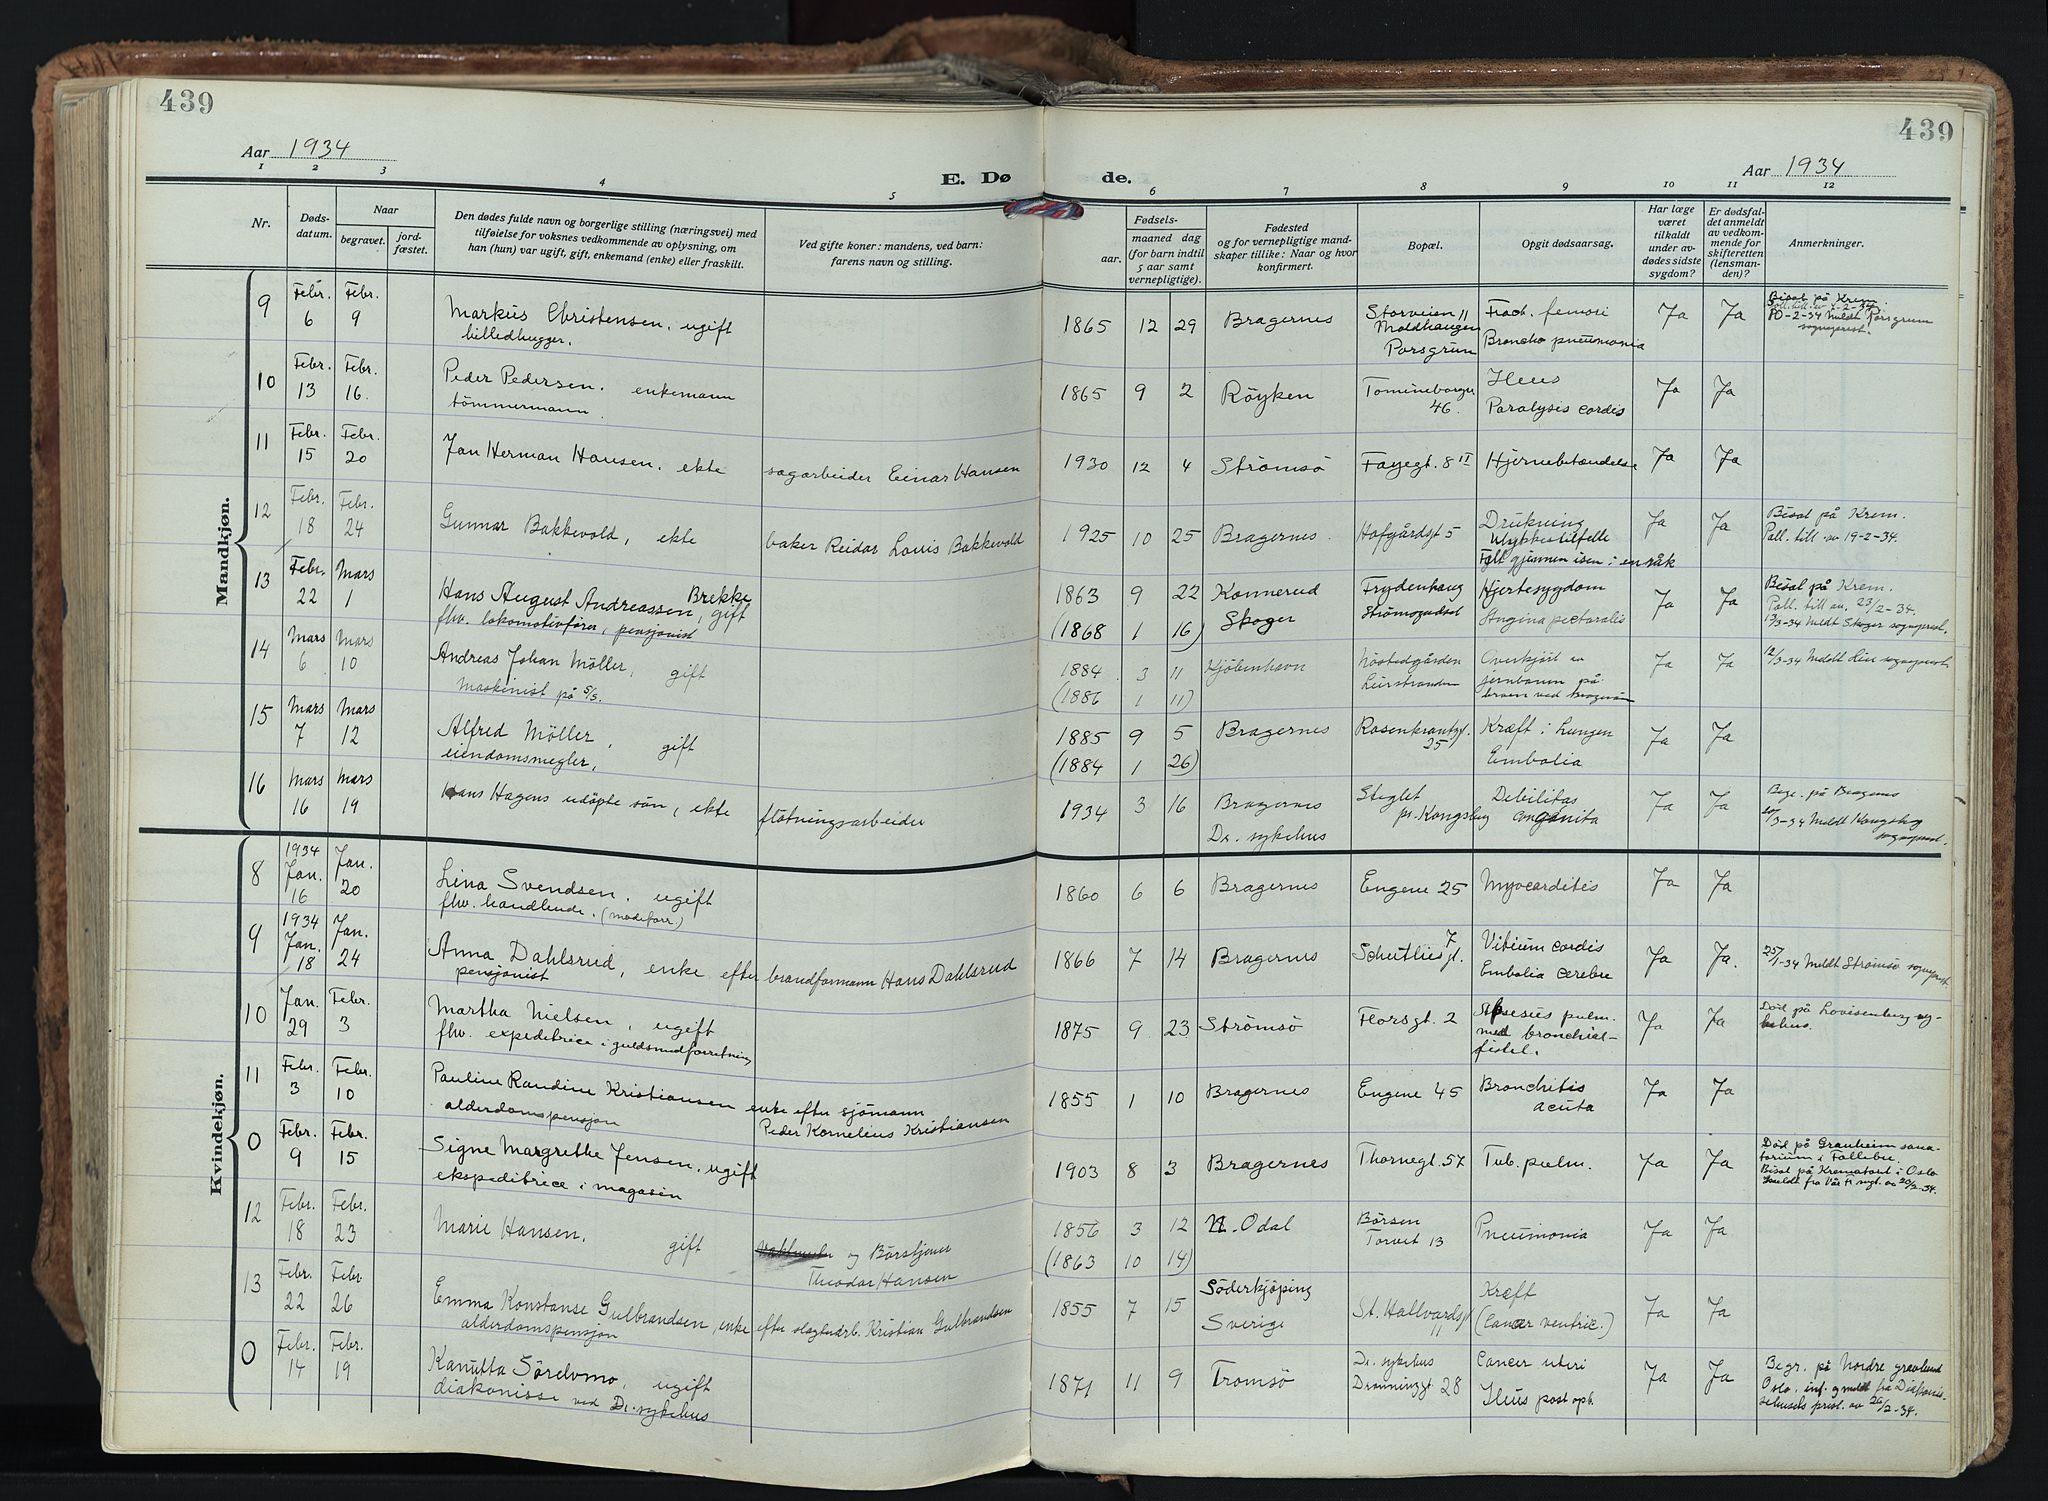 439
439
Aar 1934
E. Dø de.
Aar 1934
1 2 3 4 5 6 7 8 9 10 11 12
Nr.
Døds-
datum.
Naar
begravet.
jord-
fæstet.
Den dødes fulde navn og borgerlige stilling (næringsvei) med
tilføielse for voksnes vedkommende av oplysning, om
han (hun) var ugift, gift, enkemand (enke) eller fraskilt.
Ved gifte koner: mandens, ved barn:
farens navn og stilling.
Fødsels-
aar. maaned dag
(for barn indtil
5 aar samt
vernepligtige).
Fødested
og for vernepligtige mand-
skaper tillike: Naar og hvor
konfirmert.
Bopæl.
Opgit dødsaarsag.
Har læge
været
tilkaldt
under av-
dødes sidste
sygdom?
Er dødsfal-
det anmeldt
av vedkom-
mende for
skifteretten
(lensman-
den)?
Anmerkninger.
Mandkjøn.
9 Febr. 6 Febr. 9 Markus Christensen, ugift
billedhugger.
1865 12 29 Bragernes Storveien 11
Moldhaugen
Porsgrun
Fract. femori
Broncho pneumonia
Ja Ja Bisat på Krem.
10-2-34 Meldt Porsgrunn
sogneprest.
10 Febr. 13 Febr. 16. Peder Pedersen. enkemann
tömmermann.
1865 9 2 Röyken Tomineborggt
46.
Ileus
Paralysis cordis
Ja Ja
11 Febr. 15 Febr. 20 Jan Herman Hansen. ekte sagarbeider Einar Hansen
1930 12 4 Strömsö Fayegt. 8 II Hjernebetændelse Ja Ja
12 Febr. 18 Febr. 24 Gunnar Bakkevold, ekte baker Reidar Louis Bakkevold
1925 10 25 Bragernes. Hofgårdsgt 5 Drukning
Ulykkestilfelle
Falt gjennem isen i en råk
Ja Ja Bisat på Krem.
Poll. till. av 19-2-34.
13 Febr. 22 Mars 1 Hans August Andreassen Brekke, gift
fhv. lokomotivfører, pensjonist
1863 9 22
(1868 1 16)
Konnerud
Skoger
Frydenhaug
Strömsgodset
Hjertesygdom
Angina pectoralis
Ja Ja Bisat på Krem.
Poll. till av. 23/2-34.
13/3-34 Meldt Skoger sogneprest.
14 Mars 6 Mars 10 Andreas Johan Möller, gift
Maskinist på S/S.
1884 3 11
(1886 1 11)
Kjöbenhavn
Nöstedgården
Leirstranden
Overkjört av
jernbanen på
broen ved Bragerøen
Ja Ja 12/3-34 Meldt Lier sogneprest.
15 Mars 7 Mars 12 Alfred Möller, gift
eiendomsmegler,
1885 9 5
(1884 1 26)
Bragernes Rosenkrantzgt.
25
Kræft i Lungen
Embolia
Ja Ja
16 Mars 16 Mars 19 Hans Hagens udöpte sön, ekte flötningsarbeider
1934 3 16 Bragernes
Dr. sykehus
Steglet
pr. Kongsberg
Debilitas
congenita
Ja Ja Begr. på Bragernes
20/3-34 Meldt Kongsberg
sogneprest.
Kvindekjøn.
8 1934 Jan. 16 Jan. 20 Lina Svendsen, ugift
fhv. handlende. (modeforr.)
1860 6 6 Bragernes Engene 25 Myocarditis Ja Ja
9 1934 Jan. 18 Jan. 24 Anna Dahlsrud, enke efter brandformann Hans Dahlsrud
pensjonist
1866 7 14 Bragernes Schultzesgt. 7 Vitium cordis
Embolia cerebre
Ja Ja. 25/1-34 Meldt Strømsø sogneprest.
10 Jan. 29 Febr. 3 Martha Nielsen, ugift
fhv. expeditrice i guldsmedforretning
1875 9 23 Strömsö Florsgt. 2 Absesus pulm.
med bronchial-
fistel.
Ja Ja Død på Lovisenberg sy-
kehus.
11 Febr. 3 Febr. 10 Pauline Randine Kristiansen enke efter sjömann
alderdomspensjon Peder Kornelius Kristiansen
1855 1 10 Bragernes Engene 45 Bronchitis
acuta
Ja Ja
0 Febr. 9 Febr. 15 Signe Margrethe Jensen, ugift
ekspeditrice i magasin
1903 8 3 Bragernes Thornegt. 57 Tub. pulm. Ja Ja Död på Granheim sana-
torium i Follebu.
Bisat på Krematoriet i Oslo
20/2-34.
12 Febr. 18 Febr. 23 Marie Hansen, gift og Börstjener
Theodor Hansen
1856 3 12
(1863 10 14)
N. Odal Börsen
Torvet 13
Pneumonia Ja Ja
13 Febr. 22 Febr. 26 Emma Konstanse Gulbrandsen, enke efter slagteriarb. Kristian Gulbrandsen
alderdomspensjon
1855 7 15 Söderkjöping
Sverige
St. Hallvardsgt
11
Kræft
(Cancer ventric.)
Ja Ja
0 Febr. 14 Febr. 19 Kanutta Sörelvmo, ugift
diakonisse ved Dr. sykehus
1871 11 9 Tromsö Dr. sykehus
Dronninggt. 28
Cancer uteri
Ileus post op.
Ja Ja Begr. på Nordre gravlund
Oslo, inf. og meldt fra Diakonis-
sehusets prest. av 26/2-34.